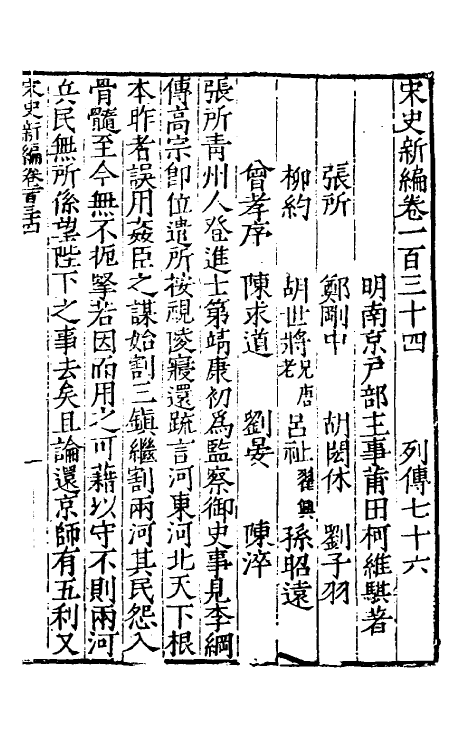 宋史新編卷一百三十四　列傳七十六
明南京戶部主事莆田柯維騏著
張所　鄭剛中　胡閎休　劉子羽
柳約　胡世將兄唐老　呂祉　翟興　孫昭遠
曾孝序　陳求道　劉晏　陳淬
張所青州人登進士第靖康初爲監察御史事見李綱
傳高宗卽位遣所按視陵寢還疏言河東河北天下根
本昨者誤用姦臣之謀始割三鎮繼割兩河其民怨入
骨髓至今無不扼掔若因而用之可藉以守不則兩河
兵民無所係望陛下之事去矣且論還京師有五利又
宋史新編卷一百三十四
一